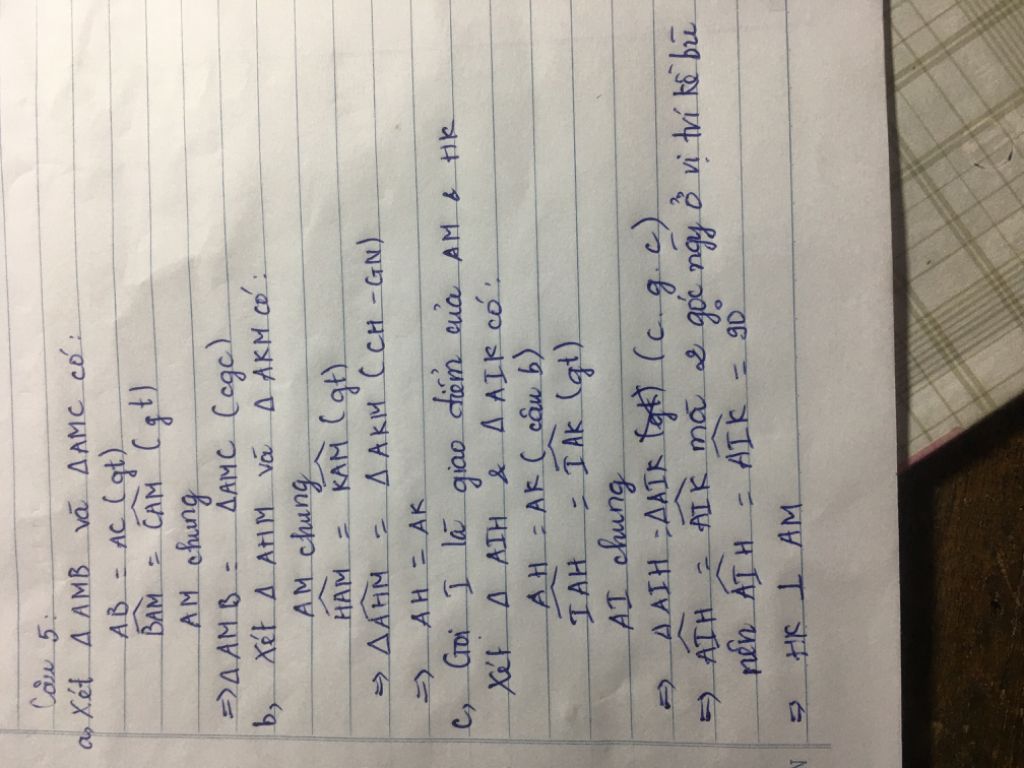 Câu 5:
a, Xét Δ AMB và ΔAMC có:
AB = AC (gt)
BAM = CAM (gt)
AM chung
=> ΔAMB = ΔAMC (cgc)
b, Xét Δ AHM và Δ AKM có:
AM chung
HAM = KAM (gt)
=> ΔAHM = ΔAKM (CH-GN)
=> AH = AK
c, Gọi I là giao điểm của AM & HK
Xét Δ AIH & Δ AIK có:
AH = AK (câu b)
IAH = IAK (gt)
AI chung
=> ΔAIH = ΔAIK (c.g.c)
=> AIH = AIK mà 2 góc này ở vị trí kề bù
nên AIH = AIK = 90°
=> HK ⊥ AM
N